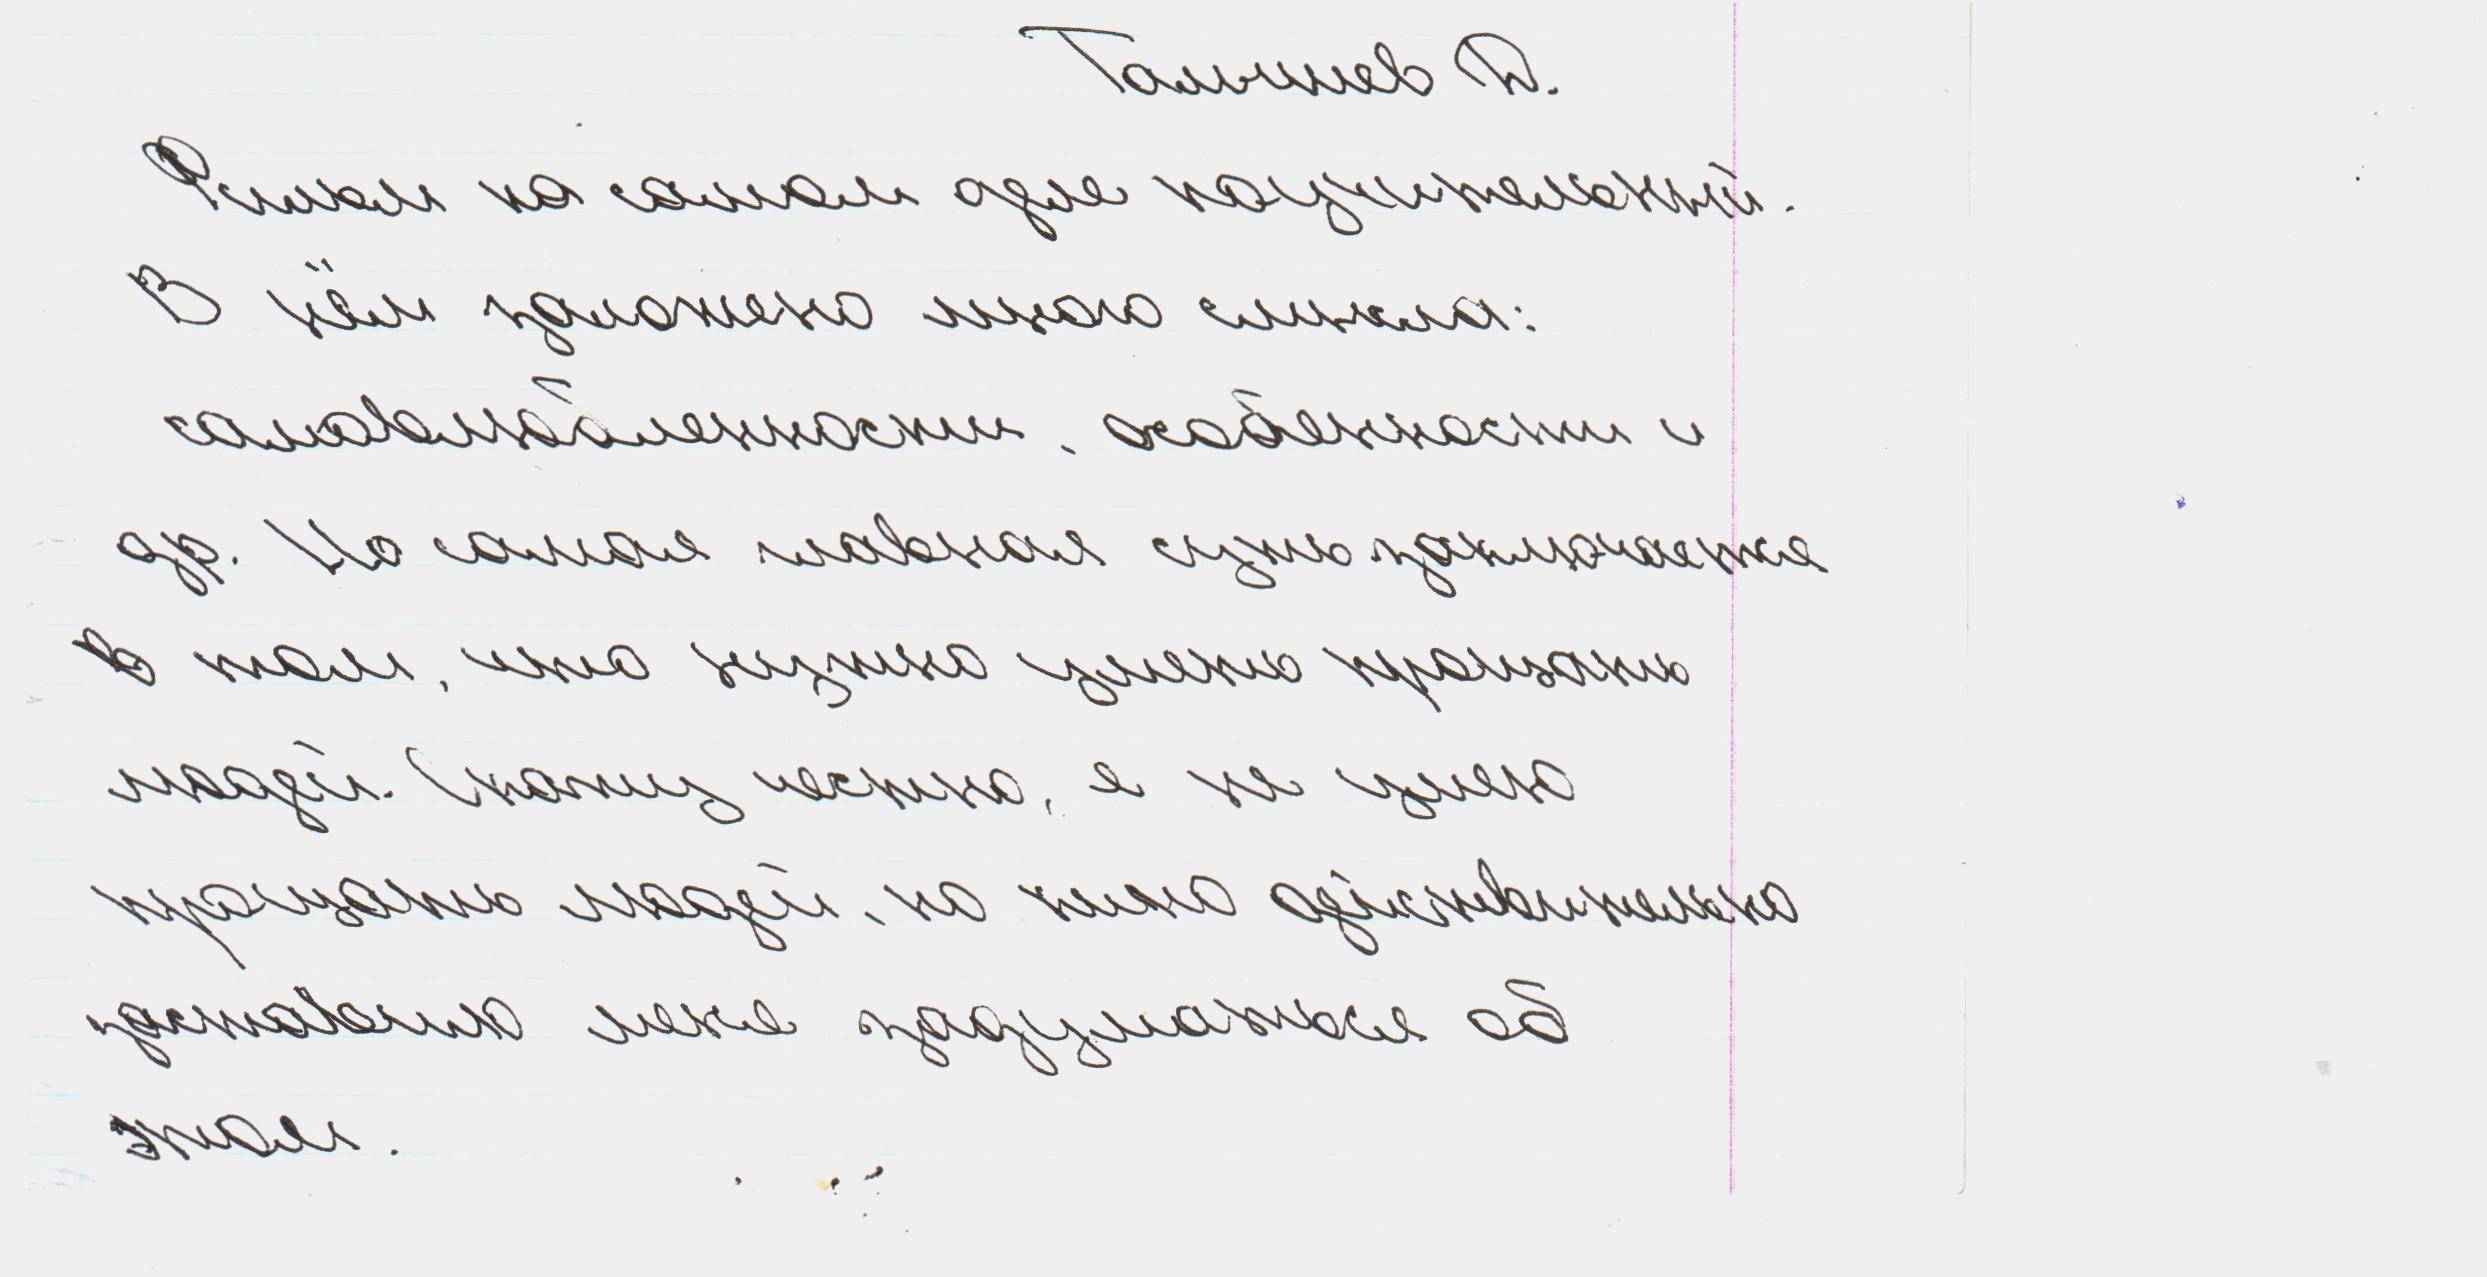 Галышев Д.
Фильм на самом деле поучительный.
В нём заложено много смысла:
самовлюбленности, особенности и
др. Но самая главная суть заключается
в том, что нужно уметь прощать
людей. Скажу честно, я не умею
прощать людей, но кино действительно
заставило меня задуматься об
этом.